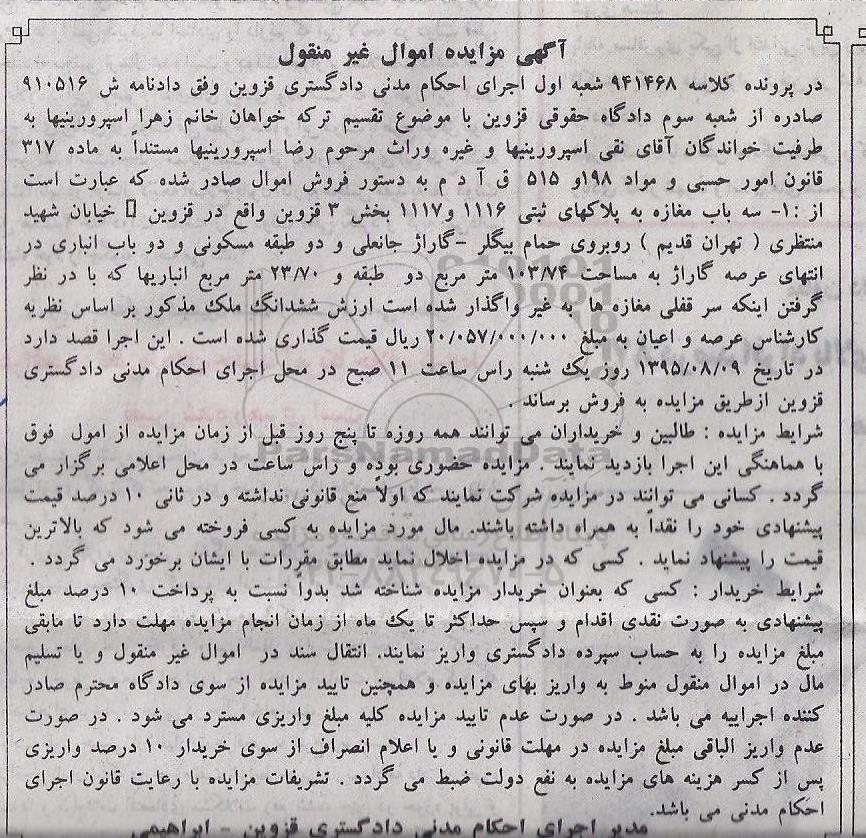 آگهی مزایده اموال غیر منقول
در پرونده کلاسه ۹۴۱۴۶۸ شعبه اول اجرای احکام مدنی دادگستری قزوین وفق دادنامه ش ۹۱۰۵۱۶
صادره از شعبه سوم دادگاه حقوقی قزوین با موضوع تقسیم ترکه خواهان خانم زهرا اسپرورینیها به
طرفیت خواندگان آقای نقی اسپرورینیها و غیره وراث مرحوم رضا اسپرورینیها مستنداً به ماده ۳۱۷
قانون امور حسبی و مواد ۱۹۸و ۵۱۵ ق آ د م به دستور فروش اموال صادر شده که عبارت است
از :۱- سه باب مغازه به پلاکهای ثبتی ۱۱۱۶ و۱۱۱۷ بخش ۳ قزوین واقع در قزوین ▯ خیابان شهید
منتظری ( تهران قدیم ) روبروی حمام بیگلر -گاراژ جانعلی و دو طبقه مسکونی و دو باب انباری در
انتهای عرصه گاراژ به مساحت ۱۰۳/۷۴ متر مربع دو طبقه و ۲۳/۷۰ متر مربع انباریها که با در نظر
گرفتن اینکه سر قفلی مغازه ها به غیر واگذار شده است ارزش ششدانگ ملک مذکور بر اساس نظریه
کارشناس عرصه و اعیان به مبلغ ۲۰/۰۵۷/۰۰۰/۰۰۰ ریال قیمت گذاری شده است . این اجرا قصد دارد
در تاریخ ۱۳۹۵/۰۸/۰۹ روز یک شنبه راس ساعت ۱۱ صبح در محل اجرای احکام مدنی دادگستری
قزوین ازطریق مزایده به فروش برساند .
شرایط مزایده : طالبین و خریداران می توانند همه روزه تا پنج روز قبل از زمان مزایده از امول فوق
با هماهنگی این اجرا بازدید نمایند . مزایده حضوری بوده و راس ساعت در محل اعلامی برگزار می
گردد . کسانی می توانند در مزایده شرکت نمایند که اولاً منع قانونی نداشته و در ثانی ۱۰ درصد قیمت
پیشنهادی خود را نقداً به همراه داشته باشند. مال مورد مزایده به کسی فروخته می شود که بالاترین
قیمت را پیشنهاد نماید . کسی که در مزایده اخلال نماید مطابق مقررات با ایشان برخورد می گردد .
شرایط خریدار : کسی که بعنوان خریدار مزایده شناخته شد بدواً نسبت به پرداخت ۱۰ درصد مبلغ
پیشنهادی به صورت نقدی اقدام و سپس حداکثر تا یک ماه از زمان انجام مزایده مهلت دارد تا مابقی
مبلغ مزایده را به حساب سپرده دادگستری واریز نمایند. انتقال سند در اموال غیر منقول و یا تسلیم
مال در اموال منقول منوط به واریز بهای مزایده و همچنین تایید مزایده از سوی دادگاه محترم صادر
کننده اجراییه می باشد . در صورت عدم تایید مزایده کلیه مبلغ واریزی مسترد می شود . در صورت
عدم واریز الباقی مبلغ مزایده در مهلت قانونی و یا اعلام انصراف از سوی خریدار ۱۰ درصد واریزی
پس از کسر هزینه های مزایده به نفع دولت ضبط می گردد . تشریفات مزایده با رعایت قانون اجرای
احکام مدنی می باشد.
مدیر اجرای احکام مدنی دادگستری قزوین - ابراهیمی
ParsNamadData